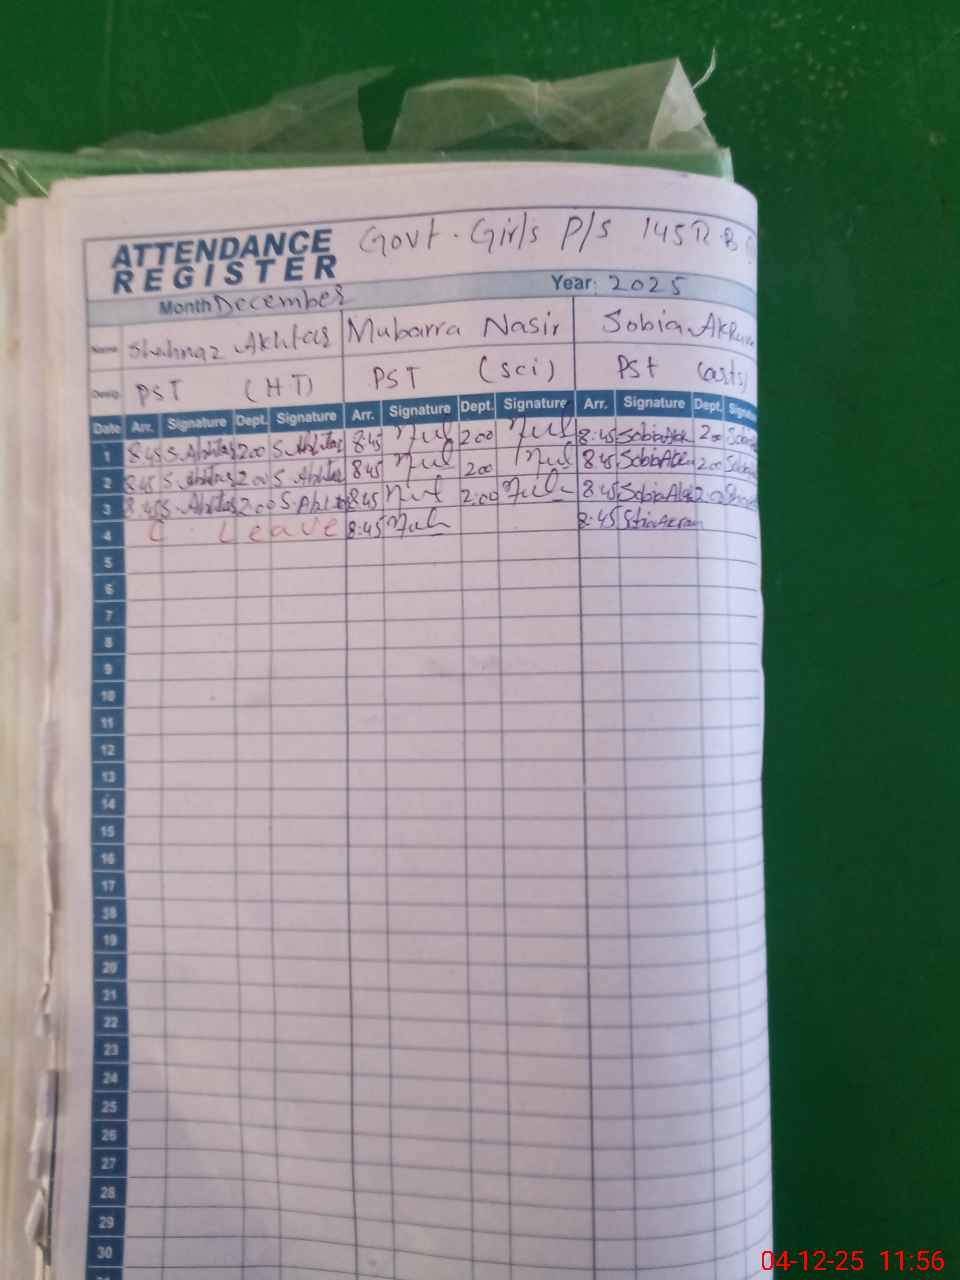 ATTENDANCE REGISTER Govt. Girls P/S 145 R.B
Month December Year: 2025
Name Shahnaz Akhtar Mubarra Nasir Sobia Akram
Desig. PST (HT) PST (sci) PSt (arts)
Date Arr. Signature Dept. Signature Arr. Signature Dept. Signature Arr. Signature Dept. Signature
1 8:45 S.Akhtar 2:00 S.Akhtar 8:45 2:00 8:45 Sobia Akr 2:00
2 8:45 S.Akhtar 2:00 S.Akhtar 8:45 2:00 8:45 Sobia Akr 2:00
3 8:45 S.Akhtar 2:00 S.Akhtar 8:45 2:00 8:45 Sobia Akr 2:00
4 C Leave 8:45 8:45 Sobia Akram
5
6
7
8
9
10
11
12
13
14
15
16
17
18
19
20
21
22
23
24
25
26
27
28
29
30
04-12-25 11:56